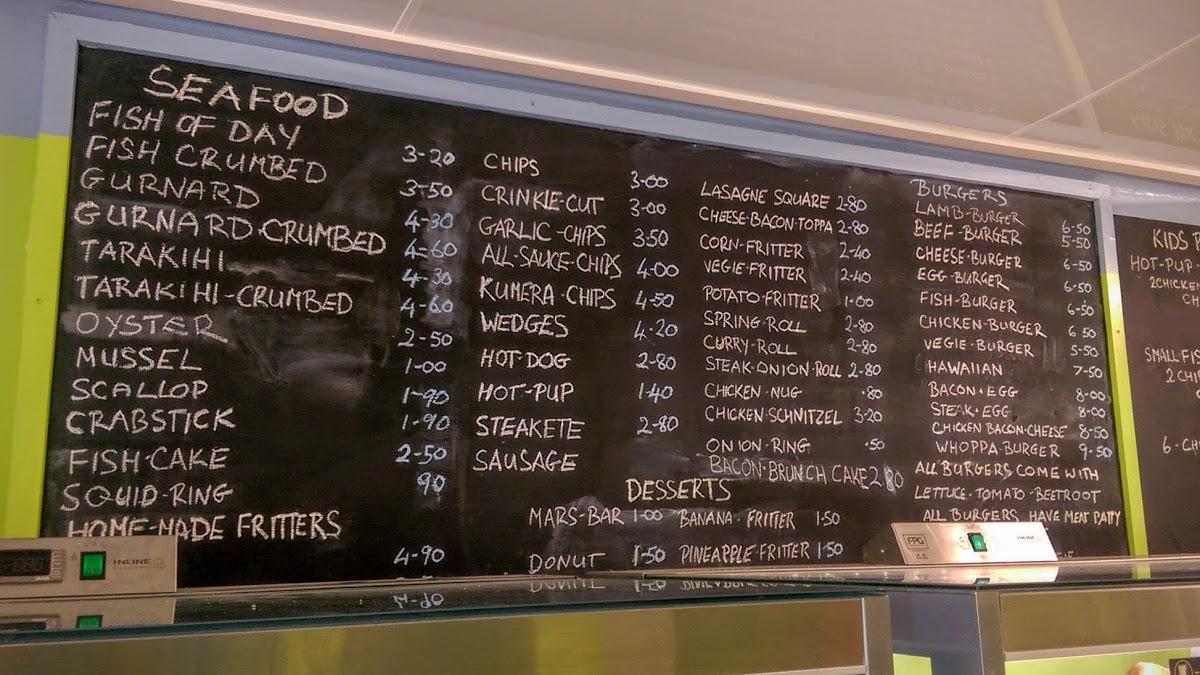 SEAFOOD
FISH OF DAY 3-20
FISH CRUMBED 3-50
GURNARD 4-30
GURNARD-CRUMBED 4-60
TARAKIHI 4-30
TARAKIHI-CRUMBED 4-60
OYSTER 2-50
MUSSEL 1-00
SCALLOP 1-90
CRABSTICK 1-90
FISH-CAKE 2-50
SQUID-RING 90
HOME-MADE FRITTERS 4-90
CHIPS 3-00
CRINKLE-CUT 3-00
GARLIC-CHIPS 3-50
ALL-SAUCE-CHIPS 4-00
KUMERA-CHIPS 4-50
WEDGES 4-20
HOT-DOG 2-80
HOT-PUP 1-40
STEAKETE 2-80
SAUSAGE
LASAGNE SQUARE 2-80
CHEESE-BACON-TOPPA 2-80
CORN-FRITTER 2-40
VEGIE-FRITTER 2-40
POTATO-FRITTER 1-00
SPRING-ROLL 2-80
CURRY-ROLL 2-80
STEAK-ONION-ROLL 2-80
CHICKEN-NUG -80
CHICKEN SCHNITZEL 3-20
ONION-RING -50
BACON-BRUNCH CAKE 2 80
DESSERTS
MARS-BAR 1-00 BANANA-FRITTER 1-50
DONUT 1-50 PINEAPPLE-FRITTER 1-50
BURGERS
LAMB-BURGER 6-50
BEEF-BURGER 5-50
CHEESE-BURGER 6-50
EGG-BURGER 6-50
FISH-BURGER 6-50
CHICKEN-BURGER 6 50
VEGIE-BURGER 5-50
HAWAIIAN 7-50
BACON-EGG 8-00
STEAK-EGG 8-00
CHICKEN BACON-CHEESE 8-50
WHOPPA-BURGER 9-50
ALL BURGERS COME WITH
LETTUCE-TOMATO-BEETROOT
ALL BURGERS HAVE MEAT PATTY
KIDS
HOT-PUP-
SMALL
2 CHIP
INLINE
FPG